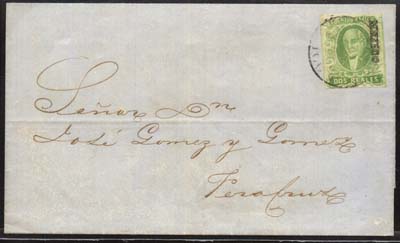 DOS REALES
Señor Dn
José Gomez y Gomez
Veracruz